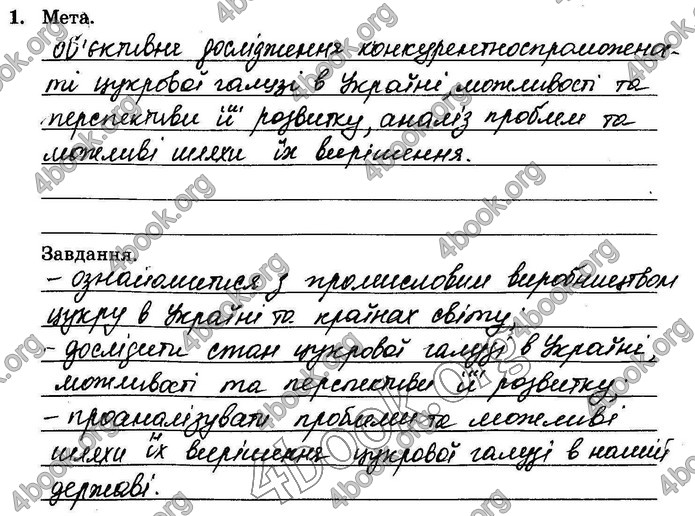 1. Мета.
об'єктивне дослідження конкурентноспроможнос-
ті цукрової галузі в Україні, можливості та
перспективи її розвитку, аналіз проблем та
можливі шляхи їх вирішення.
Завдання.
- ознайомитися з промисловим виробництвом
цукру в Україні та країнах світу;
- дослідити стан цукрової галузі в Україні,
можливості та перспективи її розвитку;
- проаналізувати проблеми та можливі
шляхи їх вирішення цукрової галузі в нашій
державі.
4book.org